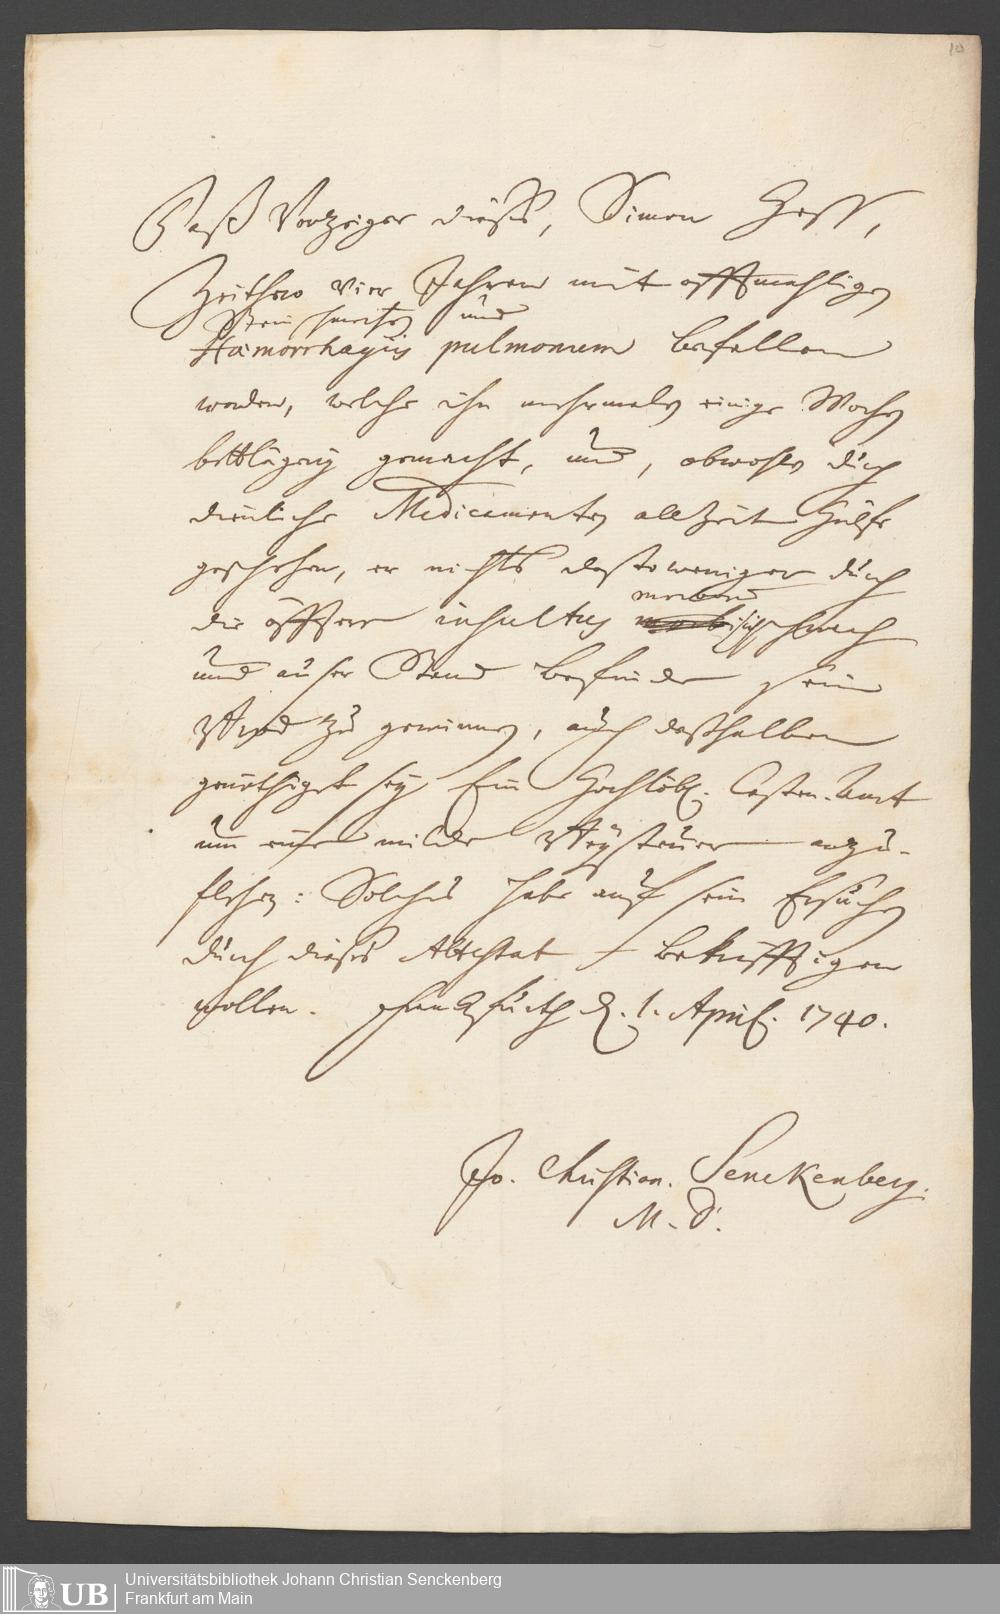 10
Daß Vorzeiger dieses, Simon Hess,
Zeithero vier Jahren mit offtmahligen
Stein schmertzen und
Hæmorrhagiis pulmonum befallen
worden, welche ihn mehrmalen einige Wochen
bettlägerig gemacht, und, obwohlen durch
dienliche Medicamenten allzeit Hülfe
geschehen, er nichts destoweniger durch
morborum
die öfftere insultus sich schwach
und auser Stand befindet sein
Brod zu gewinnen, auch deßhalben
genöthiget sey Ein Hochlöbl. Casten-Amt
um eine milde Beysteuer anzu-
flehen: Solches habe auf sein Ersuchen
durch dieses Attestat bekräfftigen
wollen. Franckfurth d. 1. April. 1740.
Jo. Christian. Senckenberg.
M. D.
UB
Universitätsbibliothek Johann Christian Senckenberg
Frankfurt am Main